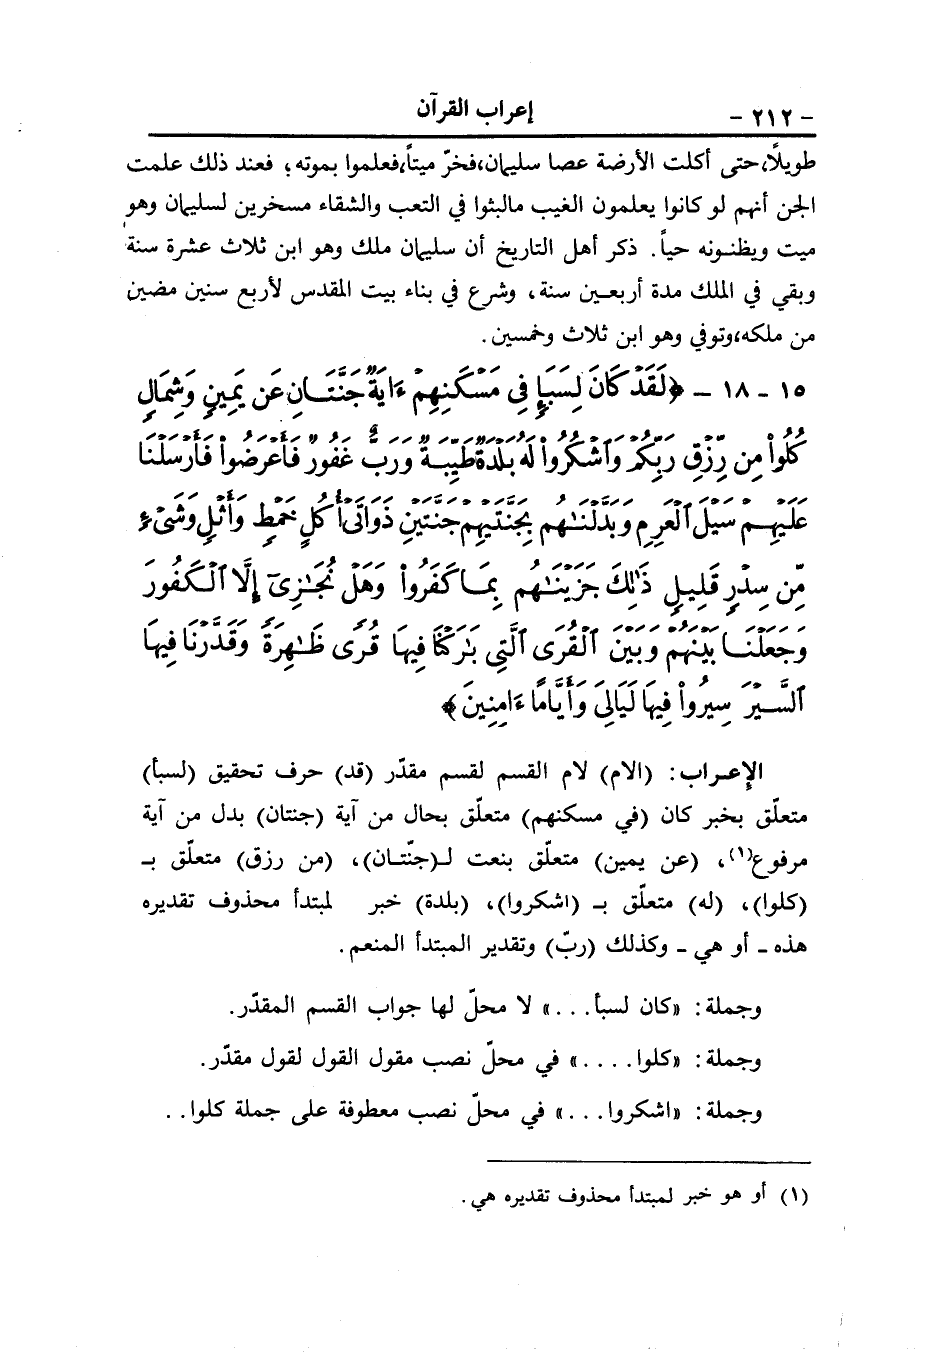 - ٢١٢ -
إعراب القرآن
طويلاً،حتى أكلت الأرضة عصا سليمان،فخرّ ميتاً،فعلموا بموته؛ فعند ذلك علمت
الجن أنهم لو كانوا يعلمون الغيب مالبثوا في التعب والشقاء مسخرين لسليمان وهو
ميت ويظنونه حياً. ذكر أهل التاريخ أن سليمان ملك وهو ابن ثلاث عشرة سنة
وبقي في الملك مدة أربعين سنة، وشرع في بناء بيت المقدس لأربع سنين مضين
من ملكه،وتوفي وهو ابن ثلاث وخمسين.
١٥ - ١٨ - ﴿لَقَدْ كَانَ لِسَبَإٍ فِي مَسْكَنِهِمْ ءَايَةٌ جَنَّتَانِ عَن يَمِينٍ وَشِمَالٍ
كُلُوا۟ مِن رِّزْقِ رَبِّكُمْ وَٱشْكُرُوا۟ لَهُۥ بَلْدَةٌ طَيِّبَةٌ وَرَبٌّ غَفُورٌ فَأَعْرَضُوا۟ فَأَرْسَلْنَا
عَلَيْهِمْ سَيْلَ ٱلْعَرِمِ وَبَدَّلْنَٰهُم بِجَنَّتَيْهِمْ جَنَّتَيْنِ ذَوَاتَىْ أُكُلٍ خَمْطٍ وَأَثْلٍ وَشَىْءٍ
مِّن سِدْرٍ قَلِيلٍ ذَٰلِكَ جَزَيْنَٰهُم بِمَا كَفَرُوا۟ وَهَلْ نُجَٰزِىٓ إِلَّا ٱلْكَفُورَ
وَجَعَلْنَا بَيْنَهُمْ وَبَيْنَ ٱلْقُرَى ٱلَّتِى بَٰرَكْنَا فِيهَا قُرًى ظَٰهِرَةً وَقَدَّرْنَا فِيهَا
ٱلسَّيْرَ سِيرُوا۟ فِيهَا لَيَالِىَ وَأَيَّامًا ءَامِنِينَ﴾
الإعراب: (الام) لام القسم لقسم مقدّر (قد) حرف تحقيق (لسبأ)
متعلّق بخبر كان (في مسكنهم) متعلّق بحال من آية (جنتان) بدل من آية
مرفوع(١)، (عن يمين) متعلّق بنعت لـ(جنّتان)، (من رزق) متعلّق بـ
(كلوا)، (له) متعلّق بـ (اشكروا)، (بلدة) خبر لمبتدأ محذوف تقديره
هذه - أو هي - وكذلك (ربّ) وتقدير المبتدأ المنعم.
وجملة: «كان لسبأ...» لا محلّ لها جواب القسم المقدّر.
وجملة: «كلوا....» في محلّ نصب مقول القول لقول مقدّر.
وجملة: «اشكروا...» في محلّ نصب معطوفة على جملة كلوا..
(١) أو هو خبر لمبتدأ محذوف تقديره هي.